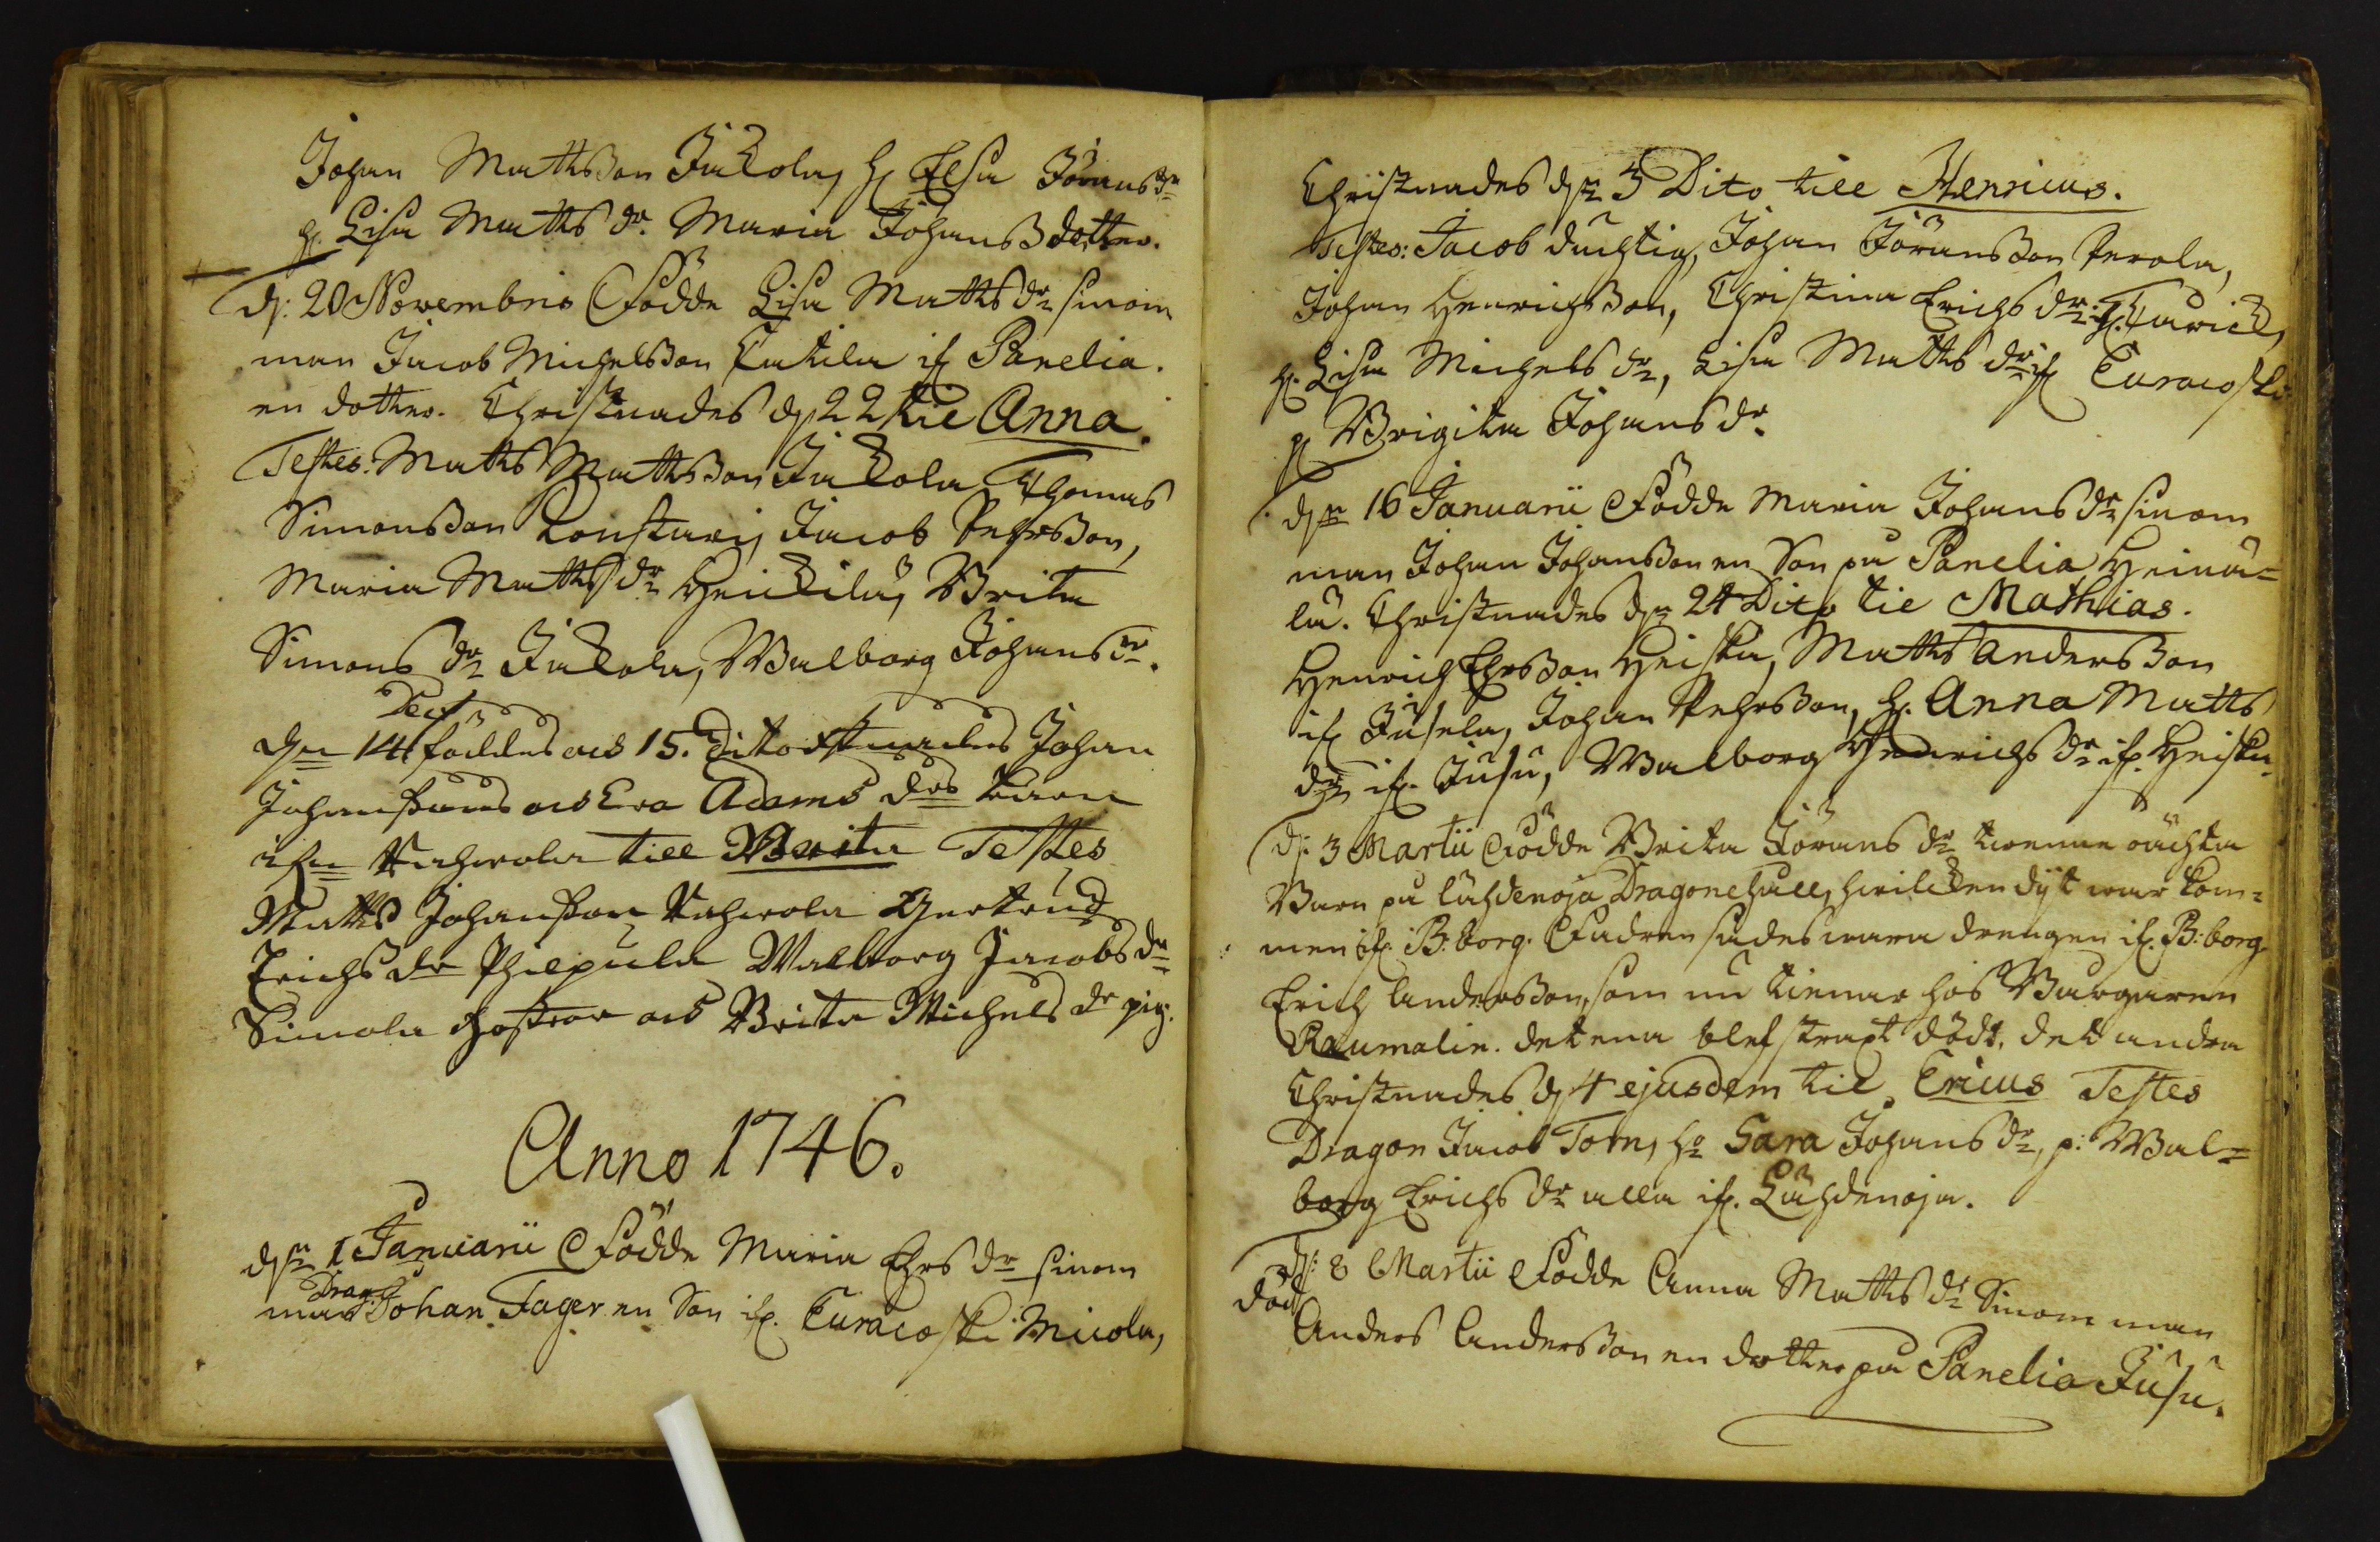 Johan Mathsson Jakola, H. Elsa Jörans dr
H. Lisa Matts dr. Maria Johans dotter.
d: 20 Novembris Födde Lisa Matts dr sinom
man Jacob Michelsson Tatila if Panelia.
en dotter. Christnades d. 22 till Anna.
Testes: Matts Mattsson Jakola, Thomas
Simonsson Konstari, Jacob Pehrsson,
Maria Matts dr Heickilä, Brita
Simons dr Jakola, Walborg Johans dr.
Dec
den 14 föddes och 15. Dito xstnades Johan
Johanssons och Eva Adams drs barn
ifrn Vahrola till Brita Testes
Matts Johansson Vahrola Gertrud
Erichs dr Philpula Walborg Jacobs dr
Simola hostror och Brita Michels dr pig.
Anno 1746.
den 1 Januarii Födde Maria Ehrs dr sinom
Drag:
man Johan Fager en Son if. Euracoski Micola,
Christnades den 5 Dito till Henricus.
Testes: Jacob duchtig, Johan Jöransson Perola,
Johan Henrichsson, Christina Erichs dr. if. Turick,
H. Lisa Michels dr, Lisa Matts dr if Euracoski
p Brigita Johans dr
den 16 Januarii Födde Maria Johans dr sinom
man Johan Johansson en Son på Panelia Heinä=
lä. Christnades den 24 Dito till Mathias.
Henrich Ehrsson Heiska, Matts Andersson
if Jusela, Johan Pehrsson, H. Anna Matts
dr if. Jusu, Walborg Henrichs dr if. Heiska.
d: 3 Martii Födde Brita Jörans dr twenne oächta
Barn på Lähdenoja Dragonehåll, hvilcken dijt war kom=
men if. B:borg. Fadren sades wara drengen if. B:borg
Erich Andersson, som nu tienar hos Borgaren
Raumalin. det ena blef straxt dödt, det andra
Christnades d 4 ejusdem till Ericus Testes
Dragon Jacob Torn, ho Sara Johans dr, p: Wal=
borg Erichs dr alla if. Lähdenoja.
d: 8 Martii Födde Anna Matts dr Sinom man
död
Anders Andersson en dotter på Panelia Jusu.